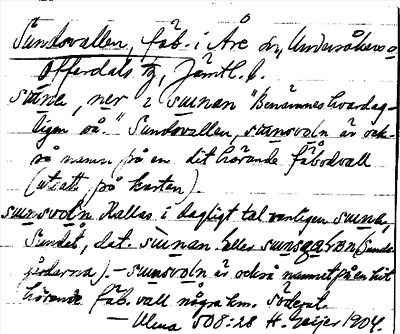 Sundsvallen, fäb. i Åre sn, Undersåkers o
Offerdals tg, Jämtl. l.
suna, ner i sunan "Benämnes hvardag-
ligen så." Sundsvallen, sunsvoln är ock-
så namn på en dit hörande fäbodvall
(utsatt på kartan).
sunsvoln kallas i dagligt tal vanligen suna,
Sundet, dat. sunan eller
jorderna). – sunsvoln är också namnet på en hit
hörande fäb. vall några km. söderut.
– Ulma 508:28 H. Geijer 1904.